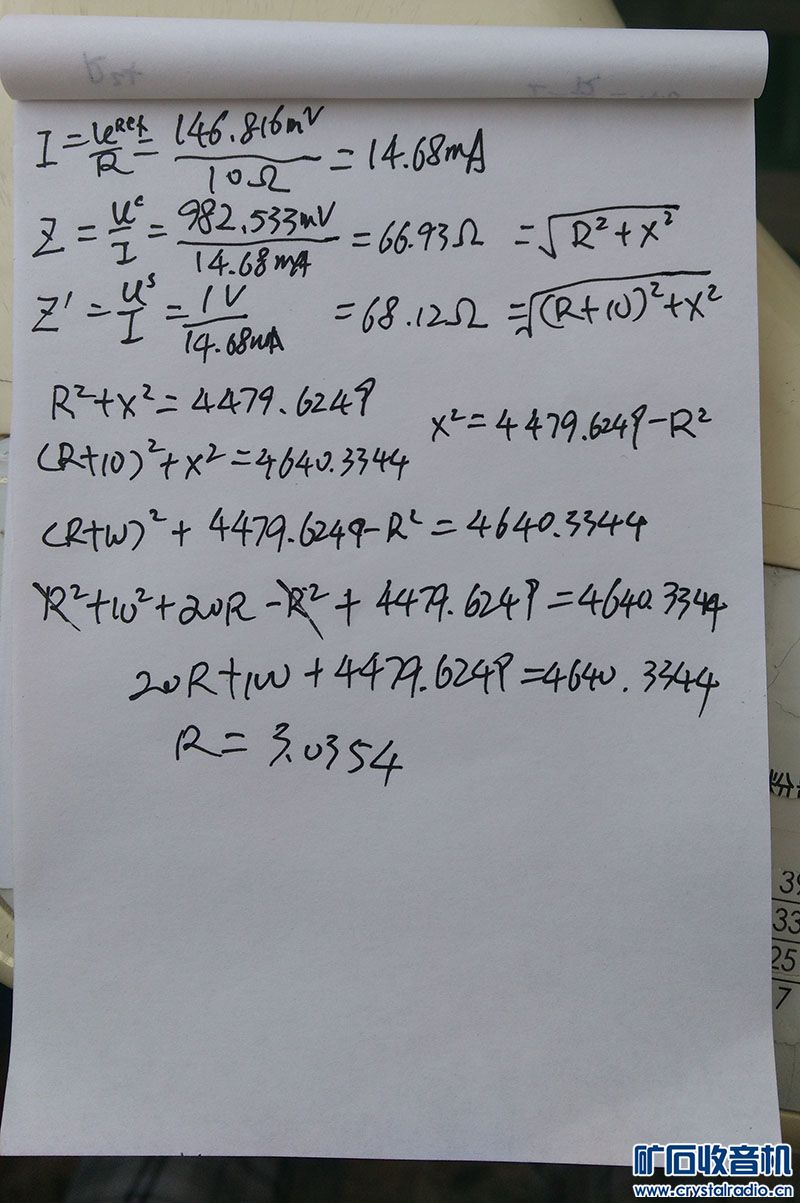 I = uRef/R = 146.816mV/10Ω = 14.68mA
Z = uc/I = 982.533mV/14.68mA = 66.93Ω = √(R²+X²)
Z' = us/I = 1V/14.68mA = 68.12Ω = √((R+10)²+X²)
R²+X²=4479.6249
X²=4479.6249-R²
(R+10)²+X²=4640.3344
(R+10)²+4479.6249-R²=4640.3344
R²+10²+20R-R²+4479.6249=4640.3344
20R+100+4479.6249=4640.3344
R=3.0354
39
33
25
7
矿石收音机
www.crystalradio.cn